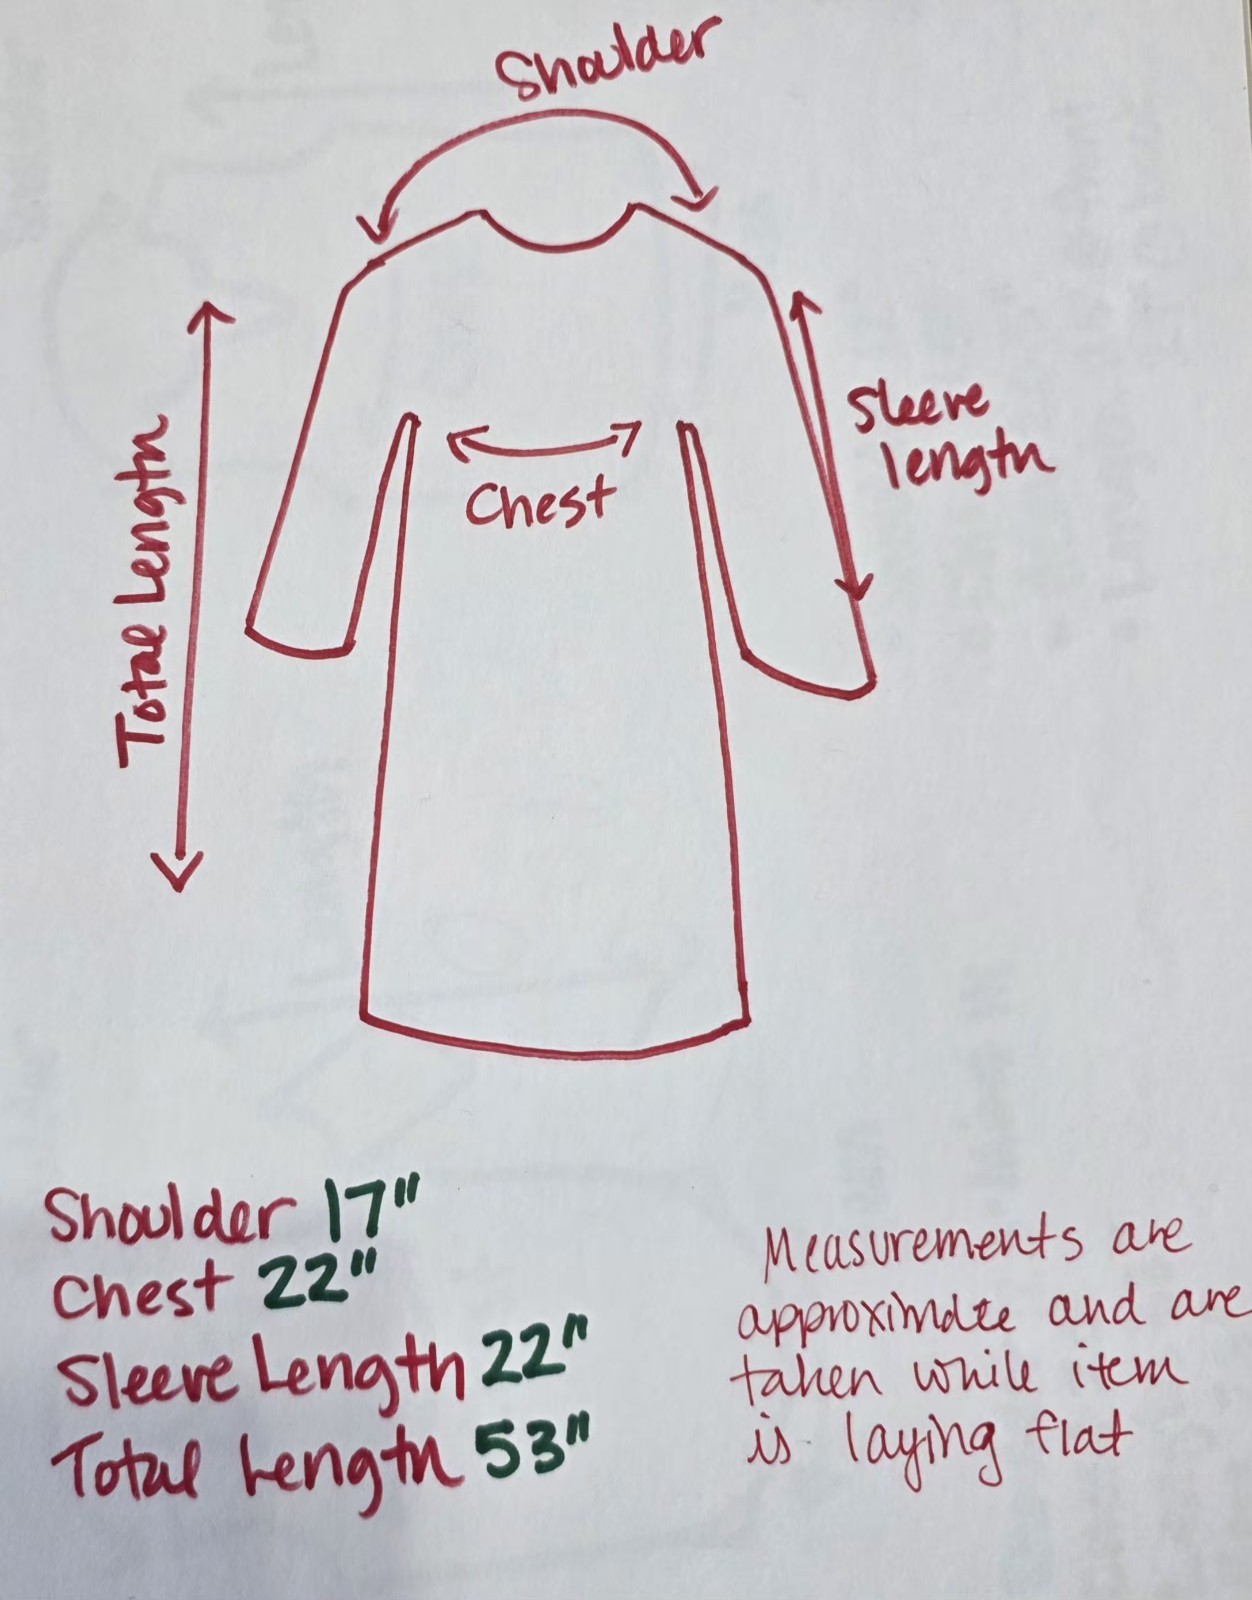 Shoulder
Sleeve
length
Chest
Total Length
Shoulder 17"
Chest 22"
Sleeve Length 22"
Total Length 53"
Measurements are
approximate and are
taken while item
is laying flat